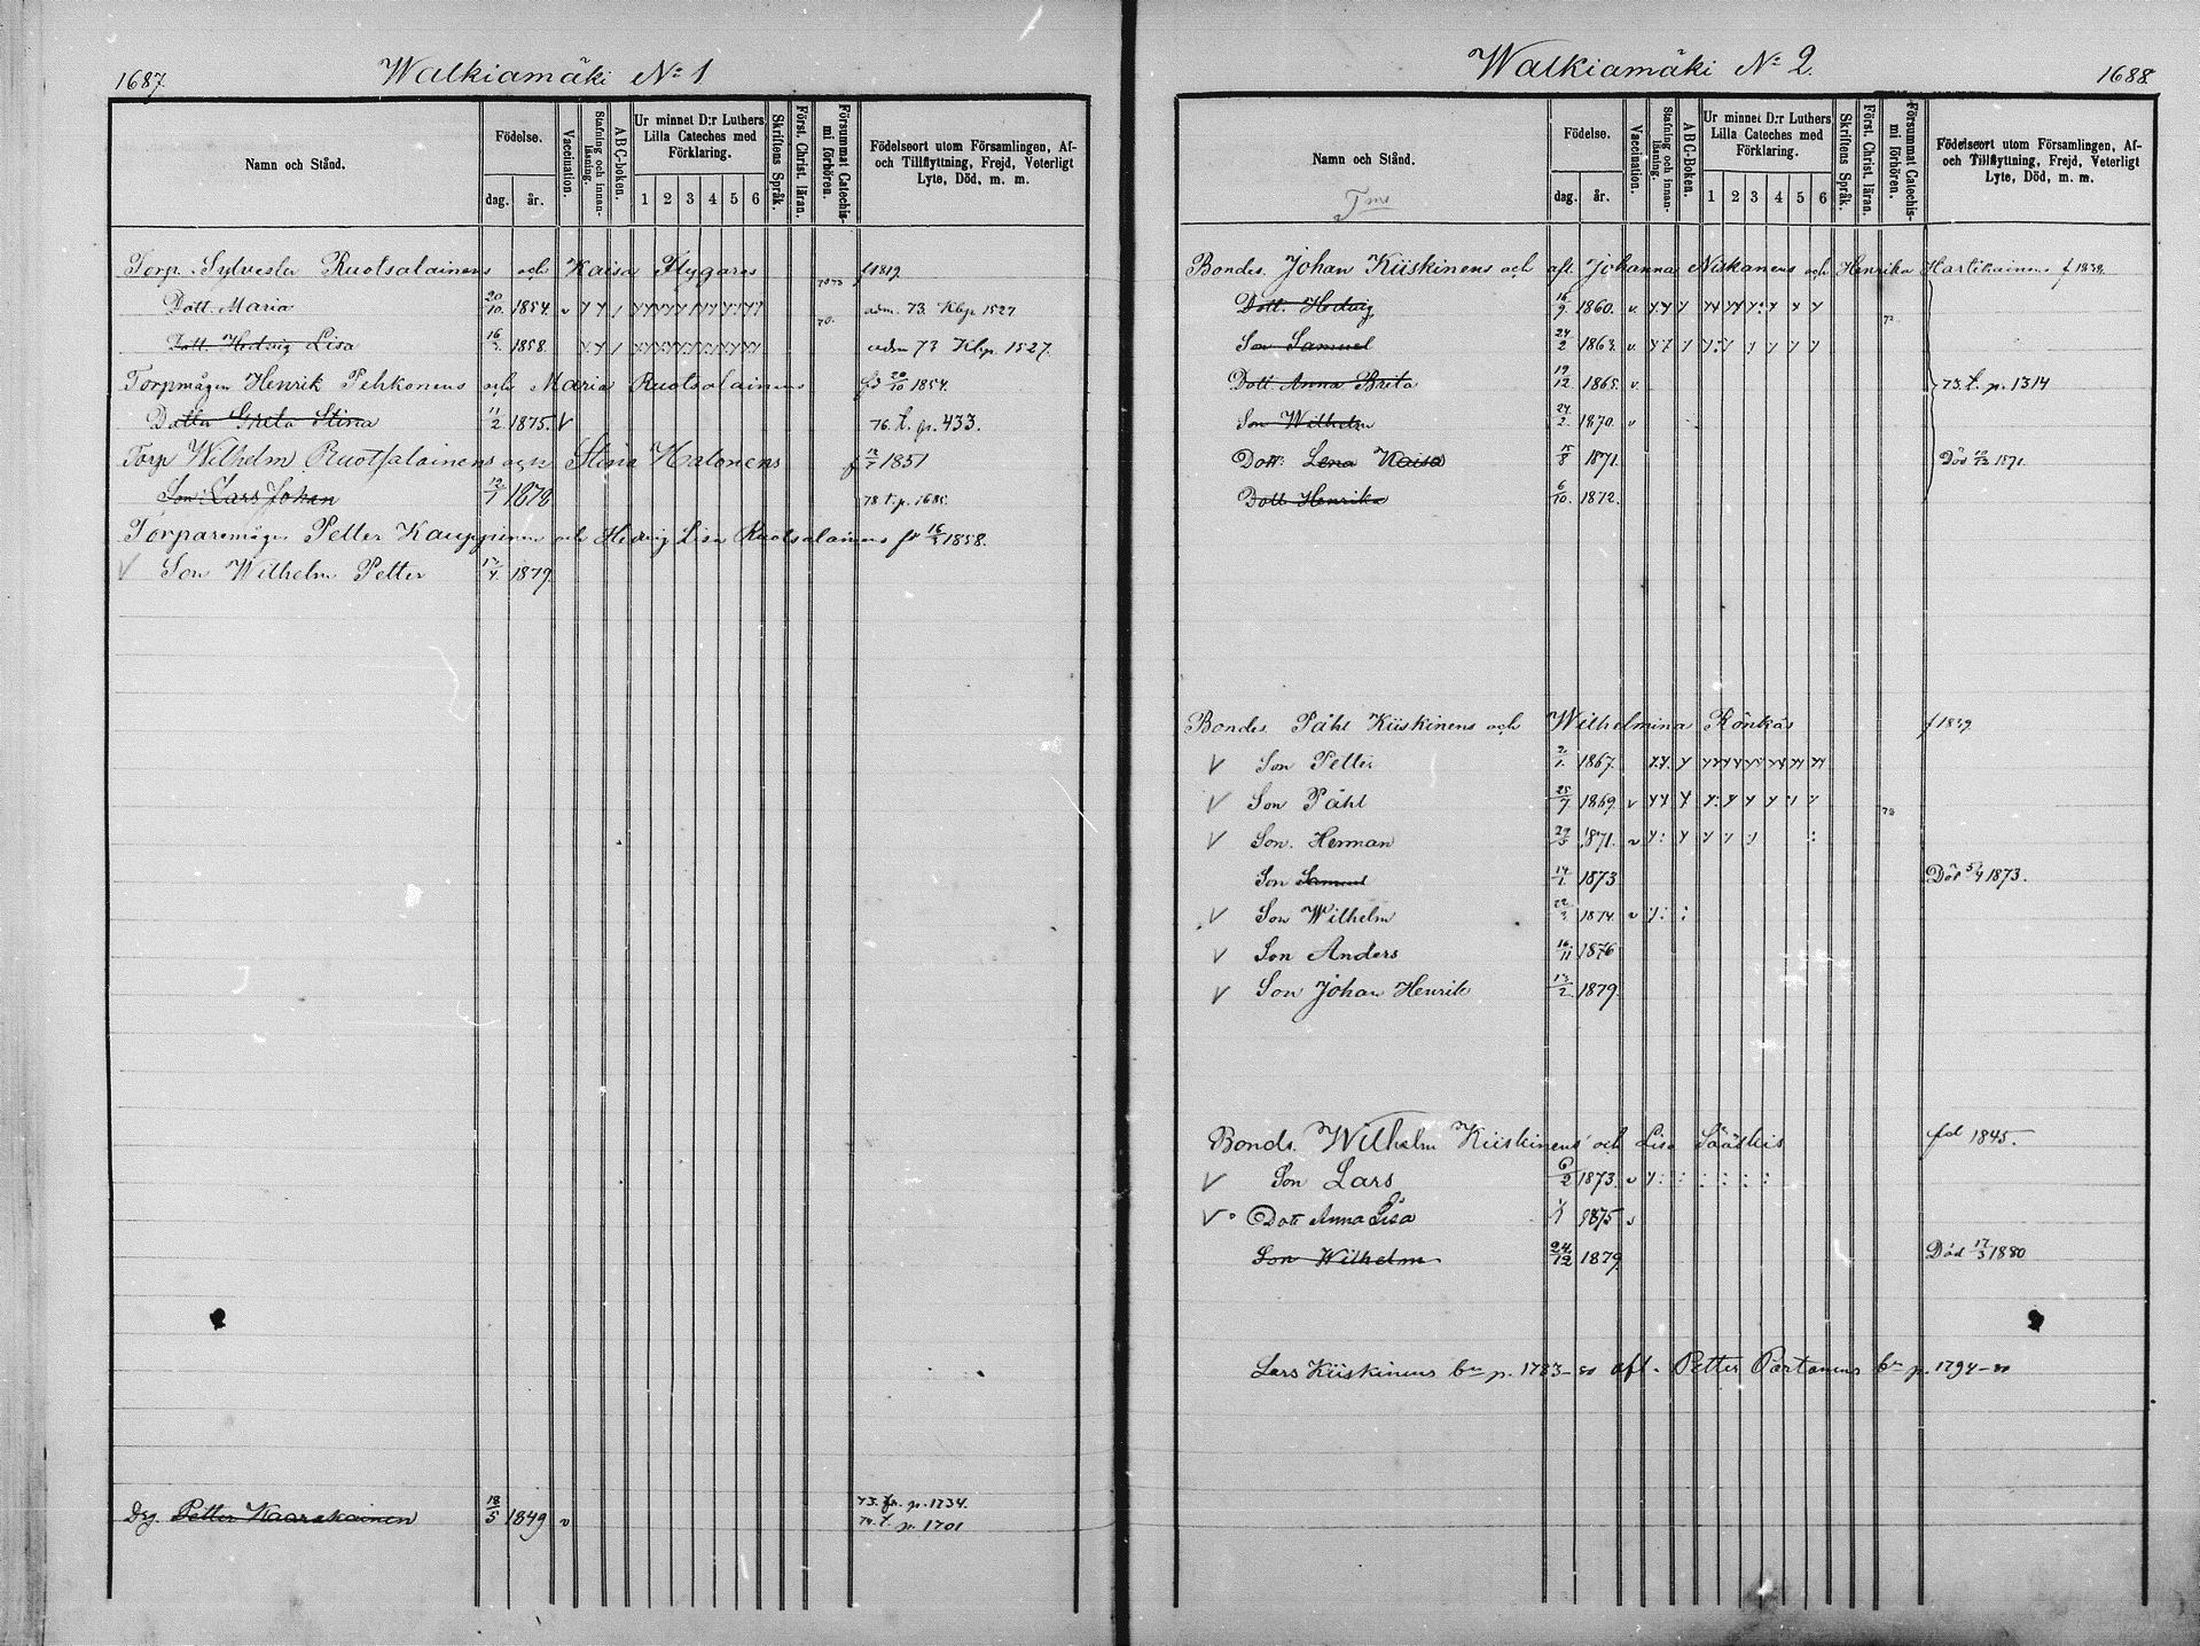 1687.
Walkiamäki No 1
Namn och Stånd.
Födelse.
dag.
år.
Vaccination.
Stafning och innanläsning.
ABC-boken.
Ur minnet D:r Luthers Lilla Cateches med Förklaring.
1 2 3 4 5 6
Skriftens Språk.
Först. Christ. läran.
Försummat Catechismi förhören.
Födelseort utom Församlingen, Af- och Tillflyttning, Frejd, Veterligt Lyte, Död, m. m.
Torp. Sylvester Ruotsalainens och Kaisa Flygares f 1819
Dott. Maria 20/10. 1854. v adm. 73. Kbp 1527
Dott. Hedvig Lisa 16/3. 1858. adm 73 Kbp. 1527.
Torpmågen Henrik Pehkonens och Maria Ruotsalainens fd 20/10 1854.
Dotter Greta Stina 11/2. 1875. V 76. t. p. 433.
Torp Wilhelm Ruotsalainens och Stina Halonens f 12/7 1851
Son Lars Johan 12/1 1878 78 t. p. 1685.
Torparemågen Petter Kauppinens och Hedvig Lisa Ruotsalainens fd 16/3 1858.
V Son Wilhelm Petter 17/4. 1879.
Drg. Petter Kaarakainen 18/5 1849 v 73. fr. p. 1734.
74. t. p. 1701
1688.
Walkiamäki No 2.
Namn och Stånd.
Födelse.
dag.
år.
Vaccination.
Stafning och innanläsning.
ABC-boken.
Ur minnet D:r Luthers Lilla Cateches med Förklaring.
1 2 3 4 5 6
Skriftens Språk.
Först. Christ. läran.
Försummat Catechismi förhören.
Födelseort utom Församlingen, Af- och Tillflyttning, Frejd, Veterligt Lyte, Död, m. m.
Bondes. Johan Kiiskinens och afl. Johanna Niskanens och Henrika Hartikainens f 1838.
Dott. Hedvig 16/9. 1860. v.
Son Samuel 24/2 1863. v.
Dott. Anna Brita 19/12. 1865. v. 73. t. p. 1314
Son Wilhelm 24/2. 1870. v
Dott. Lena Kaisa 15/8 1871. Död 1871.
Dott. Henrika 6/10. 1872.
Bondes. Påhl Kiiskinens och Wilhelmina Rönkäs f 1839.
V Son Petter 2/1. 1867.
V Son Påhl 25/7. 1869. v
V Son. Herman 29/5 1871. v
Son Samuel 14/1. 1873 Död 5/4 1873.
V Son Wilhelm 22/3. 1874. v
V Son Anders 16/11 1876
V Son Johan Henrik 13/2. 1879.
Bonds. Wilhelm Kiiskinens och Lisa Sääskis fd 1845.
V Son Lars 6/2 1873. v
V Dott Anna Lisa 1875 v
Son Wilhelm 24/12 1879 Död 17/3 1880
Lars Kiiskinens bn p. 1783 afl. Petter Partanens bn p. 1794